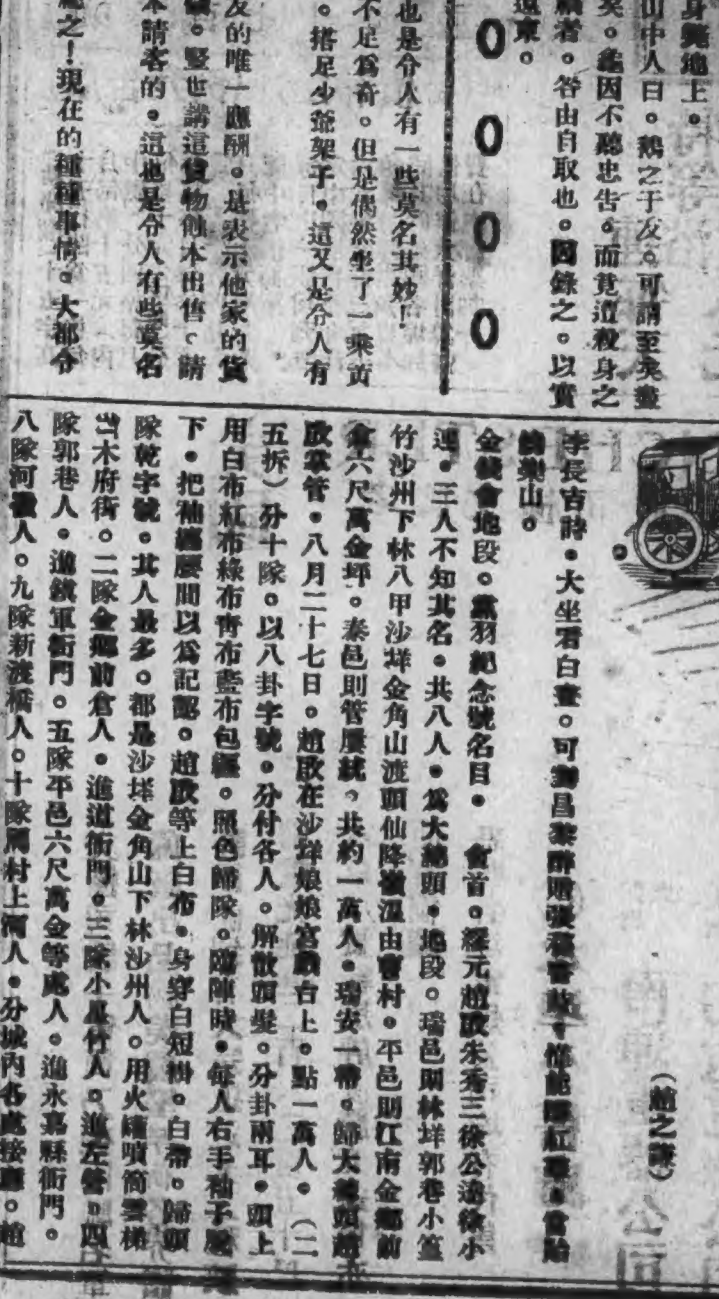 身斃地上。
山中人曰。鵝之于友。可謂至矣盡
矣。龜因不聽忠告。而竟遭殺身之
者。咎由自取也。因錄之。以實
遠東。
0000
也是令人有一些莫名其妙！
不足為奇。但是偶然坐了一乘黃
。搭足少爺架子。這又是令人有
友的唯一應酬。是表示他家的貨
。豎也講這貨物蝕本出售。請
本請客的。這也是令人有些莫名
之！現在的種種事情。大都令
（趙之謙）
李長吉詩。大坐看白晝。可
樂山。
金錢會地段。黨羽紀念號名目。 會首。 元趙啟朱秀三徐公達徐小
迎。三人不知其名。共八人。為大總頭。地段。瑞邑則林垟郭巷小篁
竹沙州下林八甲沙垟金角山渡頭仙降 溫由曹村。平邑則江南金鄉前
倉六尺萬金坪。泰邑則管 。共約一萬人。瑞安一帶。歸大總頭趙
啟掌管。八月二十七日。趙啟在沙垟娘娘宮戲台上。點一萬人。（二
五拆）分十隊。以八卦字號。分付各人。解散頭髮。分卦兩耳。頭上
用白布紅布綠布青布藍布包纏。照色歸隊。臨陣時。每人右手袖子
下。把袖纏腰間以為記認。趙啟等上白布。身穿白短褂。白帶。歸頭
隊乾字號。其人最多。都是沙垟金角山下林沙州人。用火 噴筒雲梯
木府街。二隊金鄉前倉人。進道衙門。三隊小篁竹人。進左營。四
隊郭巷人。進鎮軍衙門。五隊平邑六尺萬金等處人。進永嘉縣衙門。
八隊河 人。九隊新渡橋人。十隊 村上 人。分城內各處接應。趙